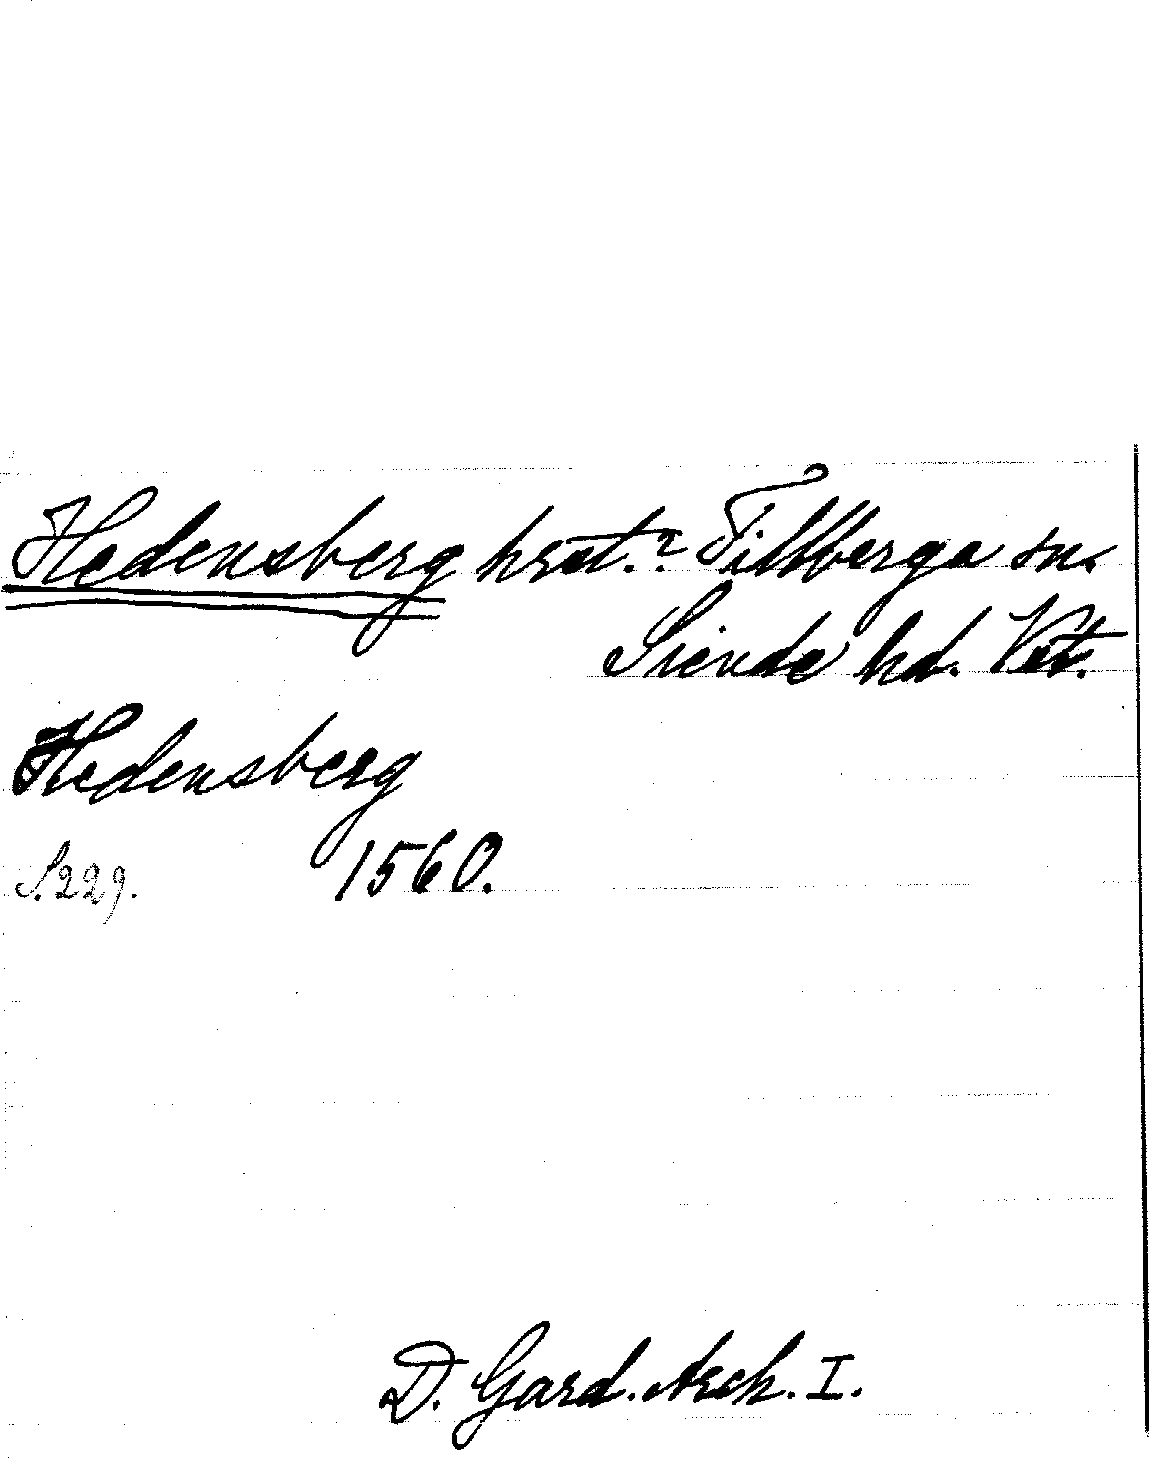 Hedensberg hrst.? Tillberga sn.
Siende hd. Vst.
Hedensberg
S. 229. 1560.
D. Gard. Arch. I.